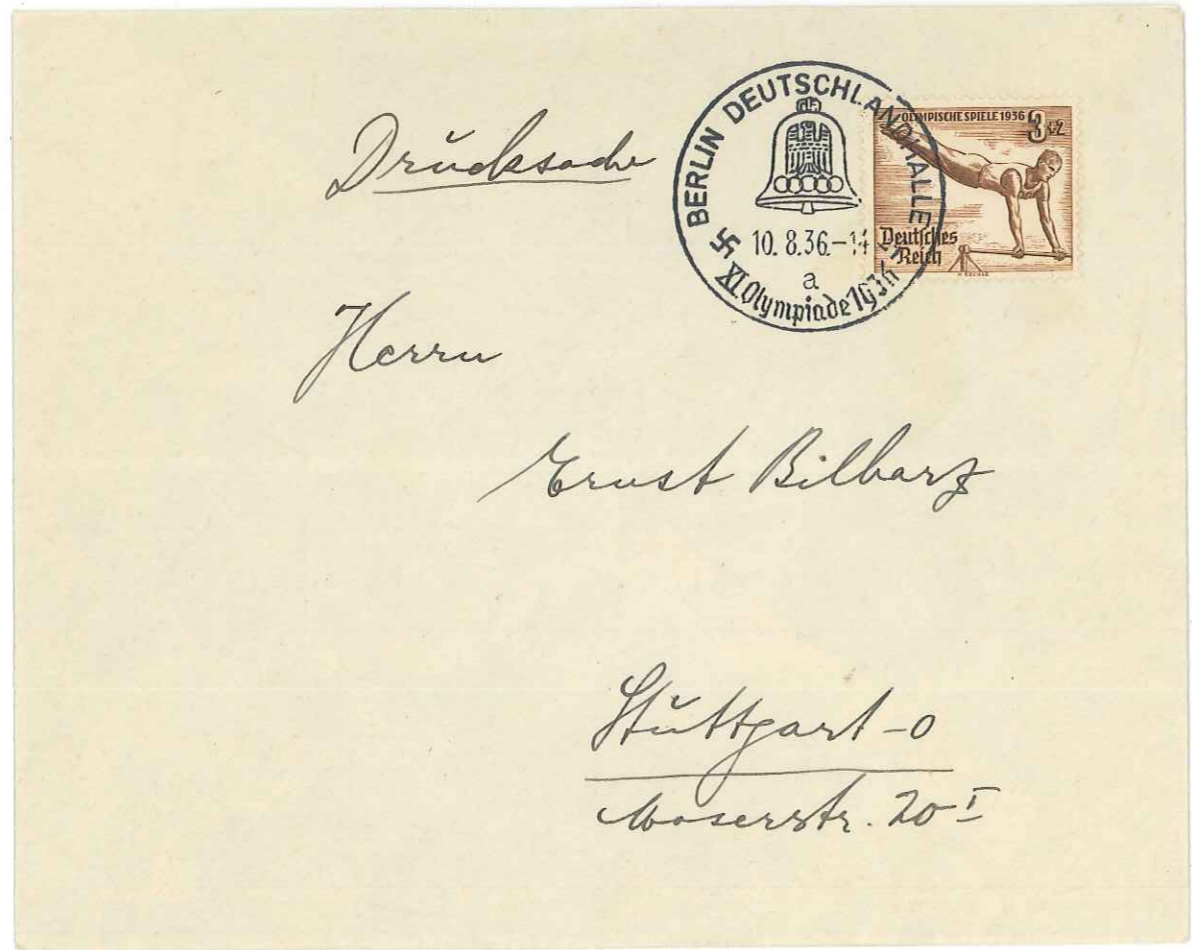 Drucksache
BERLIN DEUTSCHLANDHALLE
10.8.36.-14
a
XI. Olympiade 1936
OLYMPISCHE SPIELE 1936
3+2
Deutsches
Reich
Herrn
Ernst Bilharz
Stuttgart-O
Moserstr. 20 I